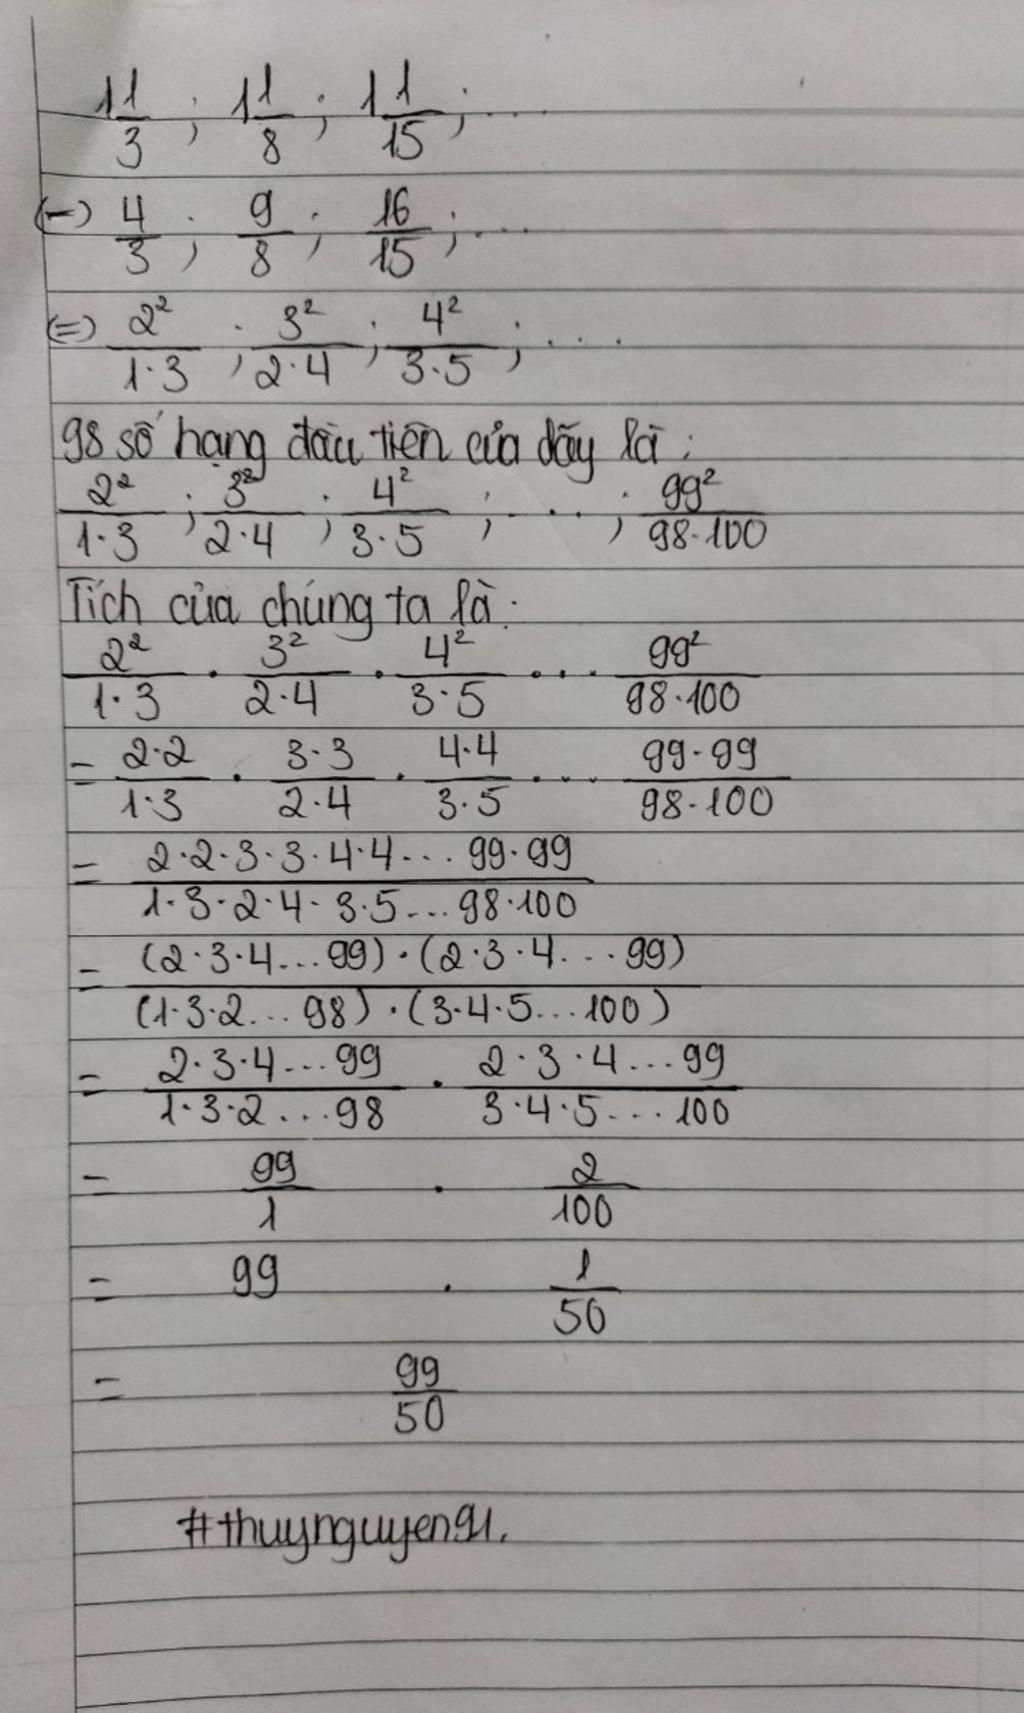 1 1/3 ; 1 1/8 ; 1 1/15 ; ...
(-) 4/3 ; 9/8 ; 16/15 ; ...
(=) 2²/1·3 ; 3²/2·4 ; 4²/3·5 ; ...
98 số hạng đầu tiên của dãy là :
2²/1·3 ; 3²/2·4 ; 4²/3·5 ; ... ; 99²/98·100
Tích của chúng ta là :
2²/1·3 · 3²/2·4 · 4²/3·5 ··· 99²/98·100
= 2·2/1·3 · 3·3/2·4 · 4·4/3·5 ··· 99·99/98·100
= 2·2·3·3·4·4... 99·99/1·3·2·4·3·5...98·100
= (2·3·4...99)·(2·3·4...99)/(1·3·2...98)·(3·4·5...100)
= 2·3·4...99/1·3·2...98 · 2·3·4...99/3·4·5...100
= 99/1 · 2/100
= 99 · 1/50
= 99/50
#thuynguyen91.